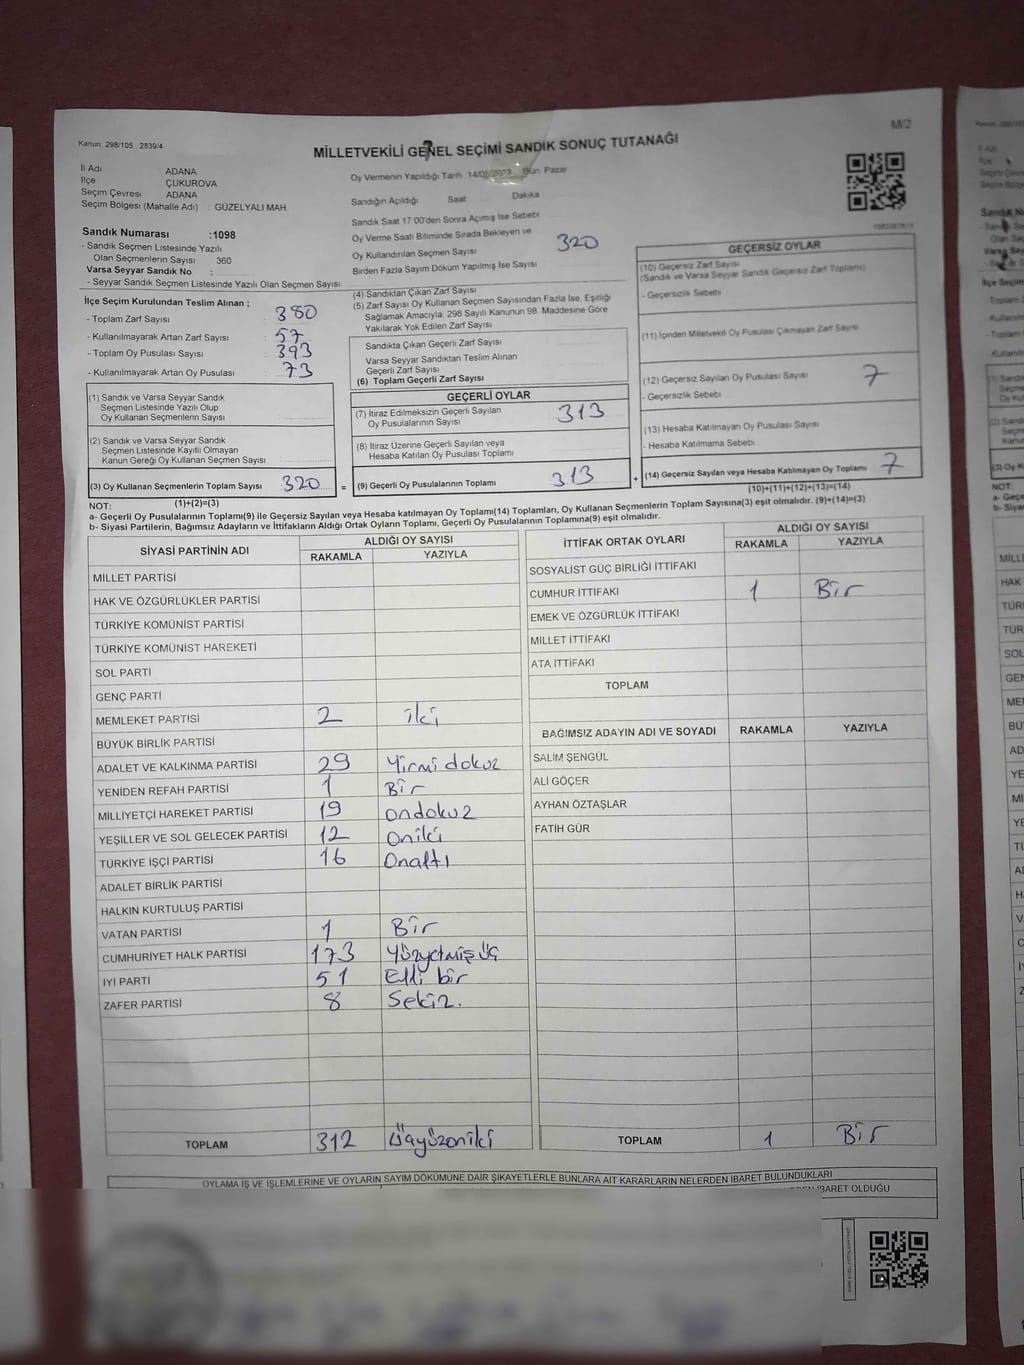 M/2
Kanun, 298/105 , 2839/4
MİLLETVEKİLİ GENEL SEÇİMİ SANDIK SONUÇ TUTANAĞI
İl Adı : ADANA
İlçe : ÇUKUROVA
Seçim Çevresi : ADANA
Seçim Bölgesi (Mahalle Adı) : GÜZELYALI MAH.
Sandık Numarası :1098
- Sandık Seçmen Listesinde Yazılı
Olan Seçmenlerin Sayısı 360
Varsa Seyyar Sandık No :
- Seyyar Sandık Seçmen Listesinde Yazılı Olan Seçmen Sayısı
İlçe Seçim Kurulundan Teslim Alınan ;
- Toplam Zarf Sayısı : 380
- Kullanılmayarak Artan Zarf Sayısı : 57
- Toplam Oy Pusulası Sayısı : 393
- Kullanılmayarak Artan Oy Pusulası : 73
(1) Sandık ve Varsa Seyyar Sandık
Seçmen Listesinde Yazılı Olup
Oy Kullanan Seçmenlerin Sayısı
(2) Sandık ve Varsa Seyyar Sandık
Seçmen Listesinde Kayıtlı Olmayan
Kanun Gereği Oy Kullanan Seçmen Sayısı
(3) Oy Kullanan Seçmenlerin Toplam Sayısı 320
(1)+(2)=(3)
Oy Vermenin Yapıldığı Tarih 14/05/2023 Gün Pazar
Sandığın Açıldığı Saat Dakika
Sandık Saat 17:00'den Sonra Açımış İse Sebebi
Oy Verme Saati Bitiminde Sırada Bekleyen ve
Oy Kullandırılan Seçmen Sayısı 320
Birden Fazla Sayım Döküm Yapılmış İse Sayısı
(4) Sandıktan Çıkan Zarf Sayısı
(5) Zarf Sayısı Oy Kullanan Seçmen Sayısından Fazla İse, Eşitliği
Sağlamak Amacıyla; 298 Sayılı Kanunun 98. Maddesine Göre
Yakılarak Yok Edilen Zarf Sayısı
Sandıkta Çıkan Geçerli Zarf Sayısı
Varsa Seyyar Sandıktan Teslim Alınan
Geçerli Zarf Sayısı
(6) Toplam Geçerli Zarf Sayısı
GEÇERLİ OYLAR
(7) İtiraz Edilmeksizin Geçerli Sayılan
Oy Pusulalarının Sayısı 313
(8) İtiraz Üzerine Geçerli Sayılan veya
Hesaba Katılan Oy Pusulası Toplamı
= (9) Geçerli Oy Pusulalarının Toplamı 313
GEÇERSİZ OYLAR
(10) Geçersiz Zarf Sayısı
(Sandık ve Varsa Seyyar Sandık Geçersiz Zarf Toplamı)
- Geçersizlik Sebebi
(11) İçinden Milletvekili Oy Pusulası Çıkmayan Zarf Sayısı
(12) Geçersiz Sayılan Oy Pusulası Sayısı 7
- Geçersizlik Sebebi
(13) Hesaba Katılmayan Oy Pusulası Sayısı
- Hesaba Katılmama Sebebi
+ (14) Geçersiz Sayılan veya Hesaba Katılmayan Oy Toplamı 7
(10)+(11)+(12)+(13)=(14)
NOT:
a- Geçerli Oy Pusulalarının Toplamı(9) ile Geçersiz Sayılan veya Hesaba katılmayan Oy Toplamı(14) Toplamları, Oy Kullanan Seçmenlerin Toplam Sayısına(3) eşit olmalıdır. (9)+(14)=(3)
b- Siyasi Partilerin, Bağımsız Adayların ve İttifakların Aldığı Ortak Oyların Toplamı, Geçerli Oy Pusulalarının Toplamına(9) eşit olmalıdır.
SİYASİ PARTİNİN ADI ALDIĞI OY SAYISI
RAKAMLA YAZIYLA
MİLLET PARTİSİ
HAK VE ÖZGÜRLÜKLER PARTİSİ
TÜRKİYE KOMÜNİST PARTİSİ
TÜRKİYE KOMÜNİST HAREKETİ
SOL PARTİ
GENÇ PARTİ
MEMLEKET PARTİSİ 2 iki
BÜYÜK BİRLİK PARTİSİ
ADALET VE KALKINMA PARTİSİ 29 Yirmi dokuz
YENİDEN REFAH PARTİSİ 1 Bir
MİLLİYETÇİ HAREKET PARTİSİ 19 ondokuz
YEŞİLLER VE SOL GELECEK PARTİSİ 12 Oniki
TÜRKİYE İŞÇİ PARTİSİ 16 Onaltı
ADALET BİRLİK PARTİSİ
HALKIN KURTULUŞ PARTİSİ
VATAN PARTİSİ 1 Bir
CUMHURİYET HALK PARTİSİ 173 Yüzyetmişüç
İYİ PARTİ 51 Elli bir
ZAFER PARTİSİ 8 Sekiz.
TOPLAM 312 Üçyüzoniki
İTTİFAK ORTAK OYLARI ALDIĞI OY SAYISI
RAKAMLA YAZIYLA
SOSYALİST GÜÇ BİRLİĞİ İTTİFAKI
CUMHUR İTTİFAKI 1 Bir
EMEK VE ÖZGÜRLÜK İTTİFAKI
MİLLET İTTİFAKI
ATA İTTİFAKI
TOPLAM
BAĞIMSIZ ADAYIN ADI VE SOYADI RAKAMLA YAZIYLA
SALİM ŞENGÜL
ALİ GÖÇER
AYHAN ÖZTAŞLAR
FATİH GÜR
TOPLAM 1 Bir
OYLAMA İŞ VE İŞLEMLERİNE VE OYLARIN SAYIM DÖKÜMÜNE DAİR ŞİKAYETLERLE BUNLARA AİT KARARLARIN NELERDEN İBARET BULUNDUKLARI
İBARET OLDUĞU